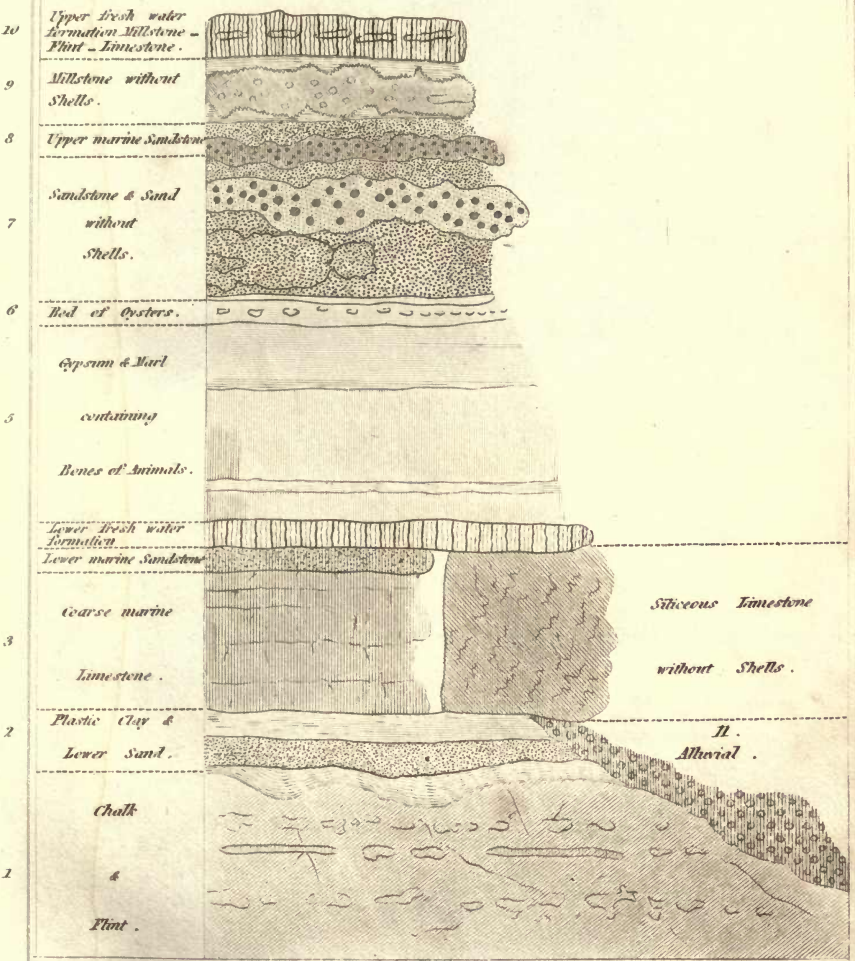 10
Upper fresh water
formation Millstone –
Flint – Limestone .
9
Millstone without
Shells .
8
Upper marine Sandstone
7
Sandstone & Sand
without
Shells .
6
Bed of Oysters .
5
Gypsum & Marl
containing
Bones of Animals .
Lower fresh water
formation
Lower marine Sandstone
3
Coarse marine
Limestone .
Siliceous Limestone
without Shells .
2
Plastic Clay &
Lower Sand .
11 .
Alluvial .
1
Chalk
&
Flint .